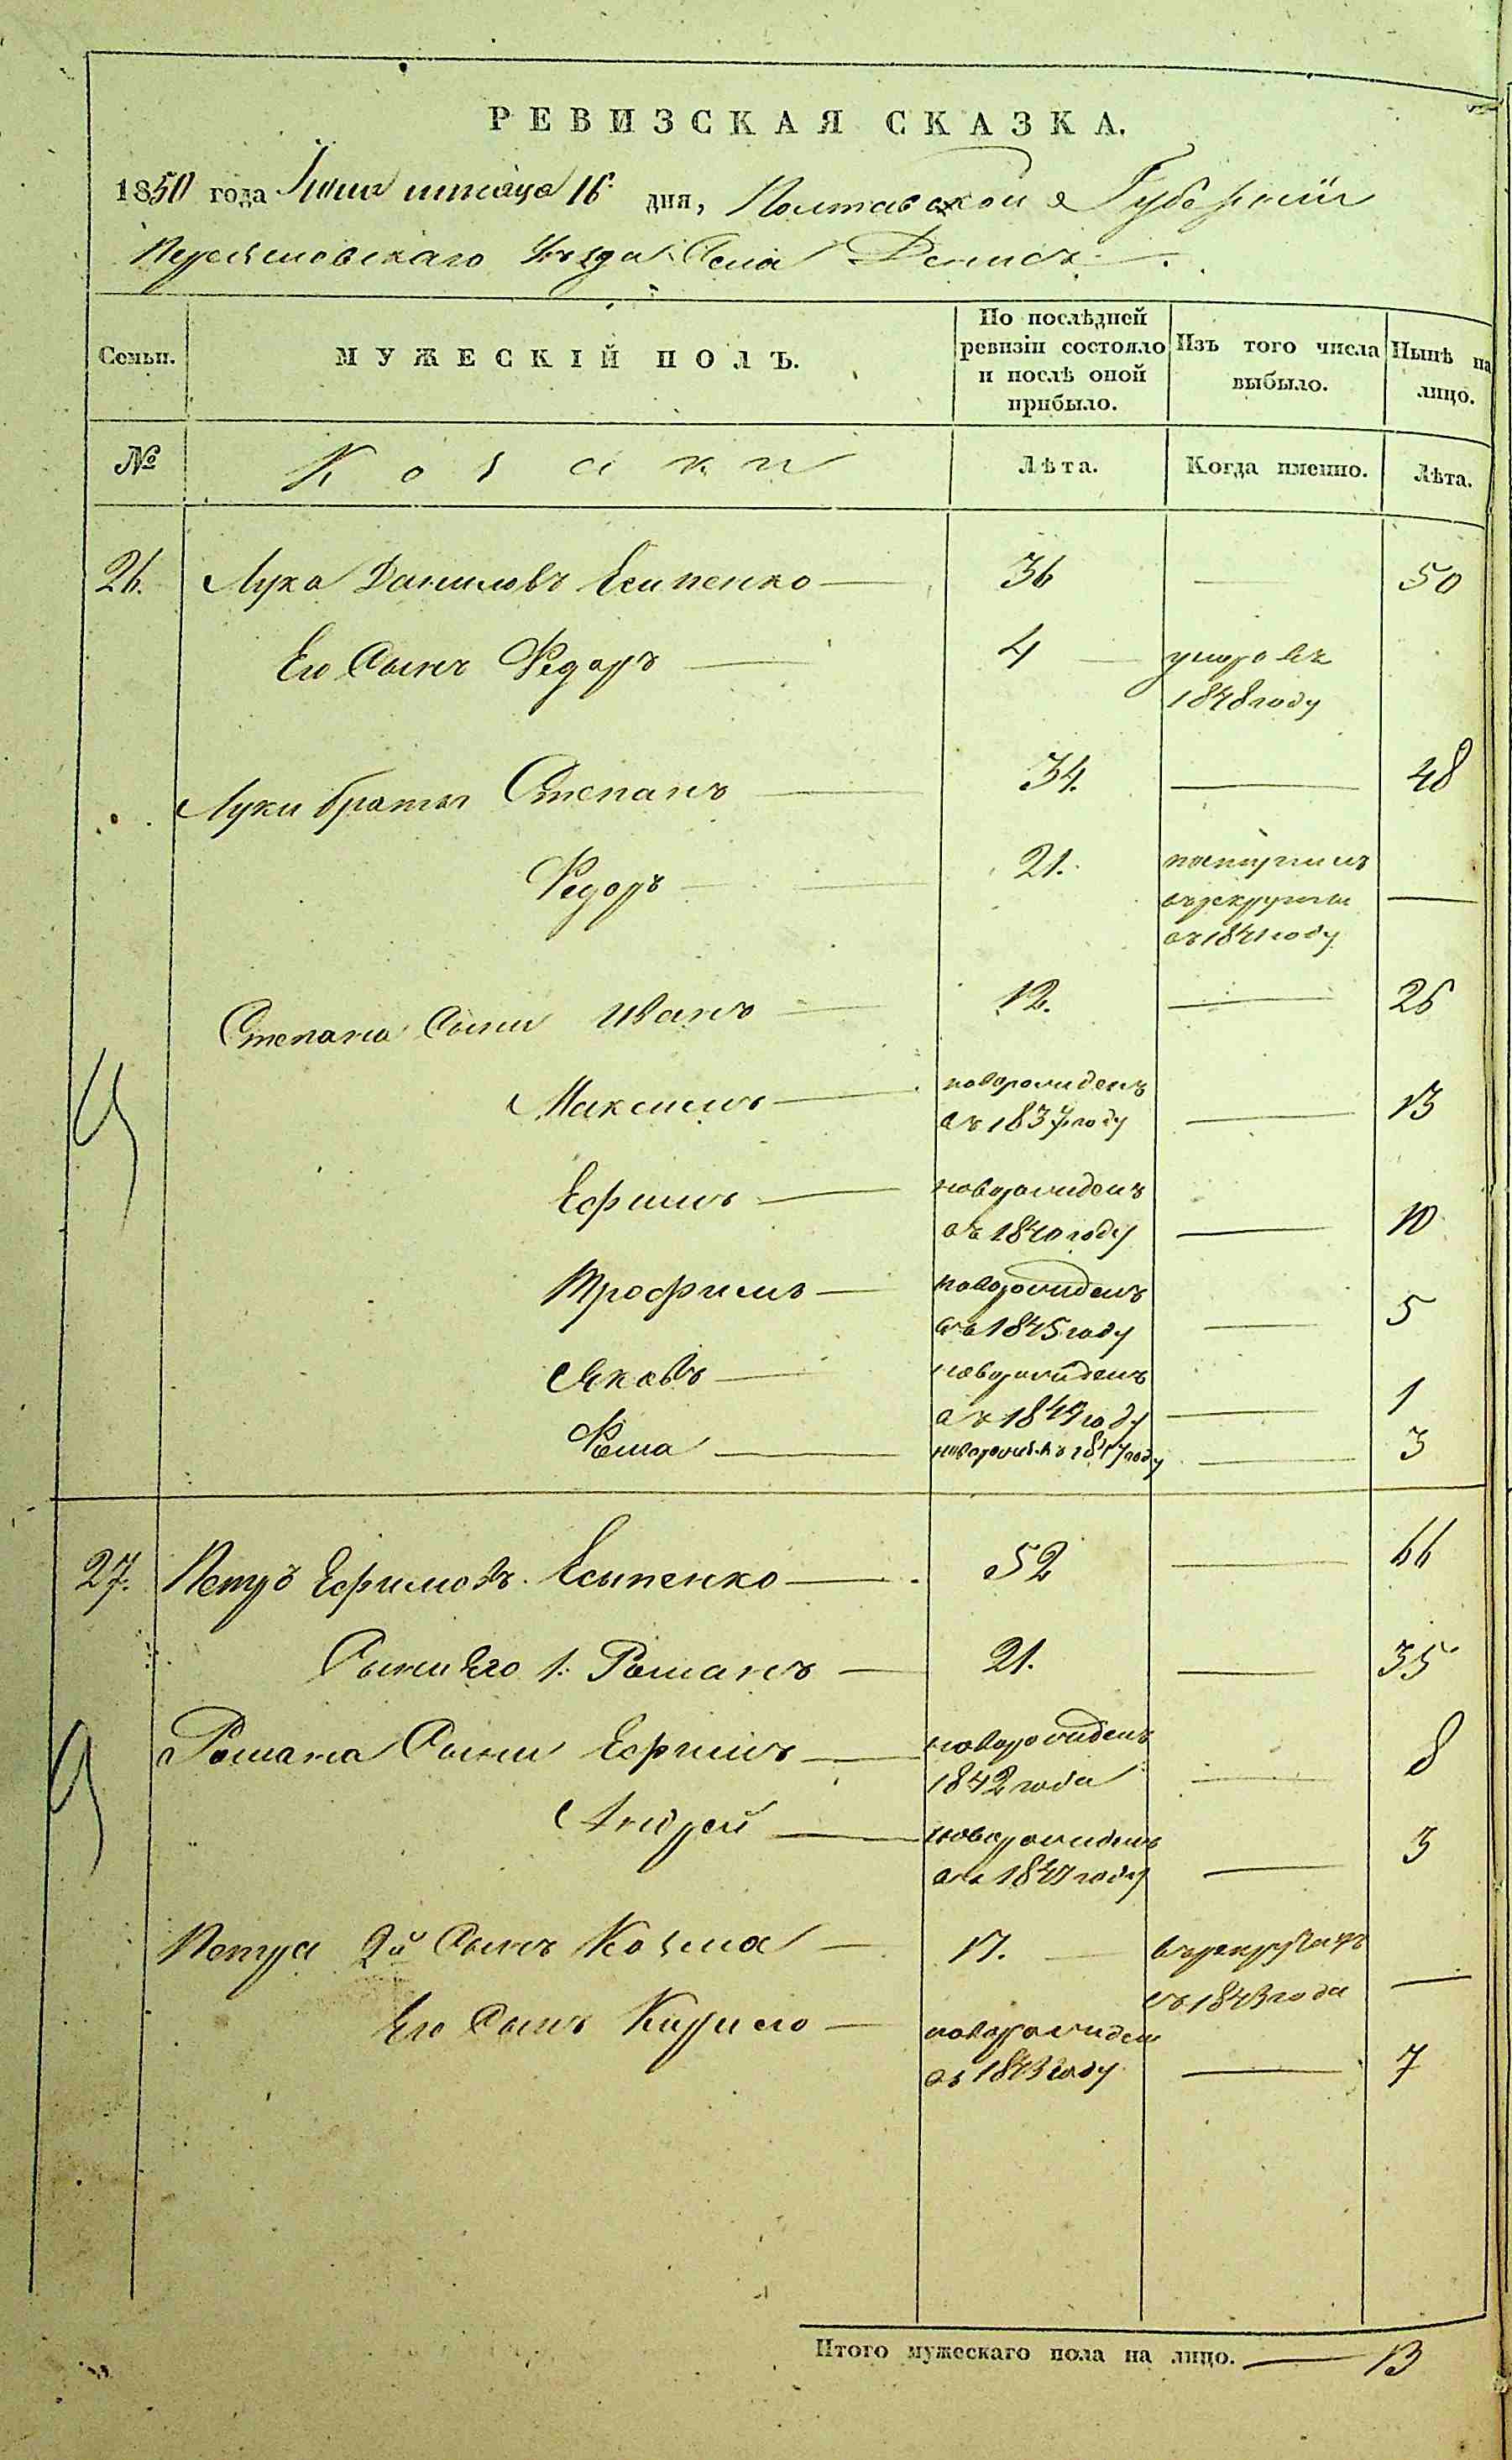 РЕВИЗСКАЯ СКАЗКА.
1850 года Іюня мѣсяца 16 дня, Полтавской Губерніи
Переяславскаго Уѣзда Села Денисъ.
Семьи. МУЖЕСКІЙ ПОЛЪ. По послѣдней ревизіи состояло и послѣ оной прибыло. Изъ того числа выбыло. Нынѣ на лицо.
№ Козаки Лѣта. Когда именно. Лѣта.
26. Лука Даниловъ Есипенко 36 — 50
Его Сынъ Федоръ 4 умеръ въ
1848 году
Луки братья Степанъ 34. — 48
Федоръ 21. поступилъ
въ рекруты —
въ 1841 году
Степана Сыни Иванъ 12. — 26
Максимъ новорожденъ
въ 1837 году — 13
Ефимъ новорожденъ
въ 1840 году — 10
Трофимъ новорожденъ
въ 1845 году — 5
Яковъ новорожденъ
въ 1849 году — 1
Фома новорожд. въ 1847 году — 3
27. Петръ Ефимовъ Есипенко 52 — 66
Сыни Его 1. Романъ 21. — 35
Романа Сыни Ефимъ новорожденъ
1842 года — 8
Андрей новорожденъ
въ 1847 году — 3
Петра 2й Сынъ Козма 17. в рекрутахъ
съ 1843 года —
Его Сынъ Кирило новорожден
въ 1843 году — 7
Итого мужескаго пола на лицо. — 13